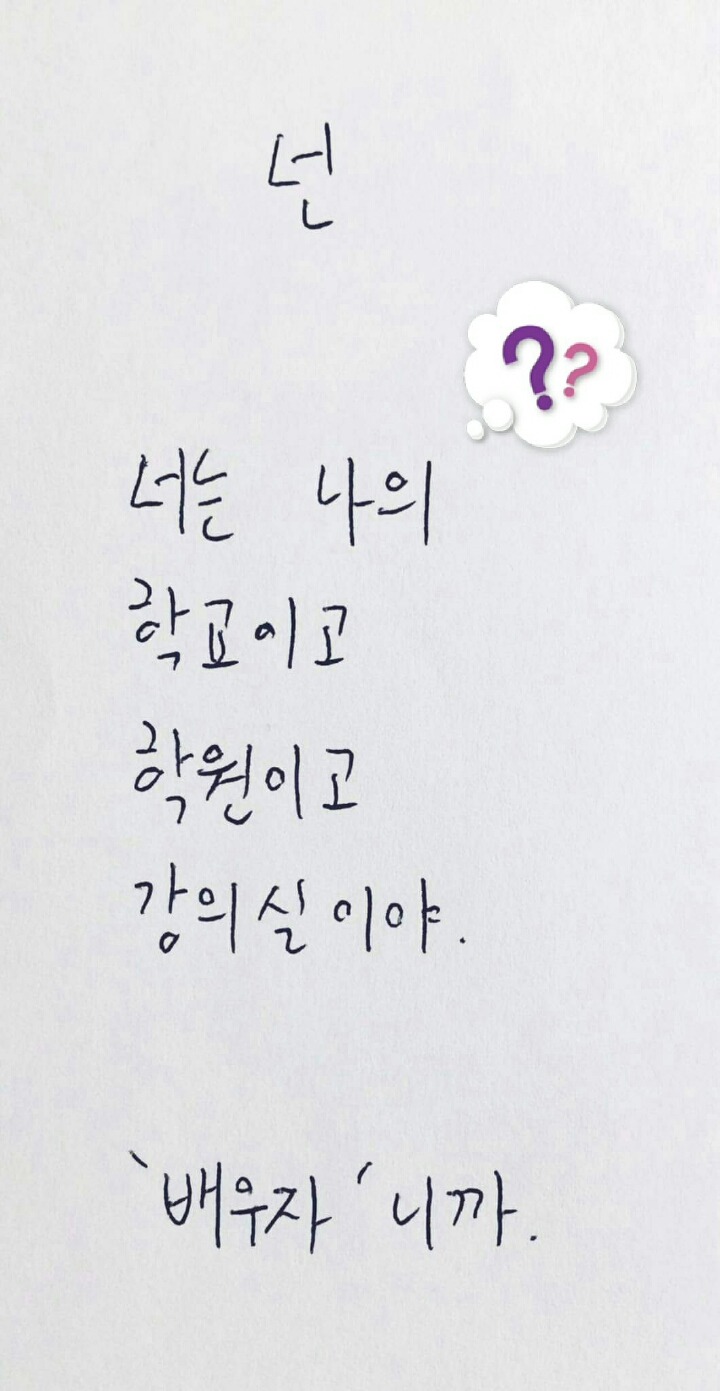 넌
??
너는 나의
학교이고
학원이고
강의실이야.
‵배우자′니까.